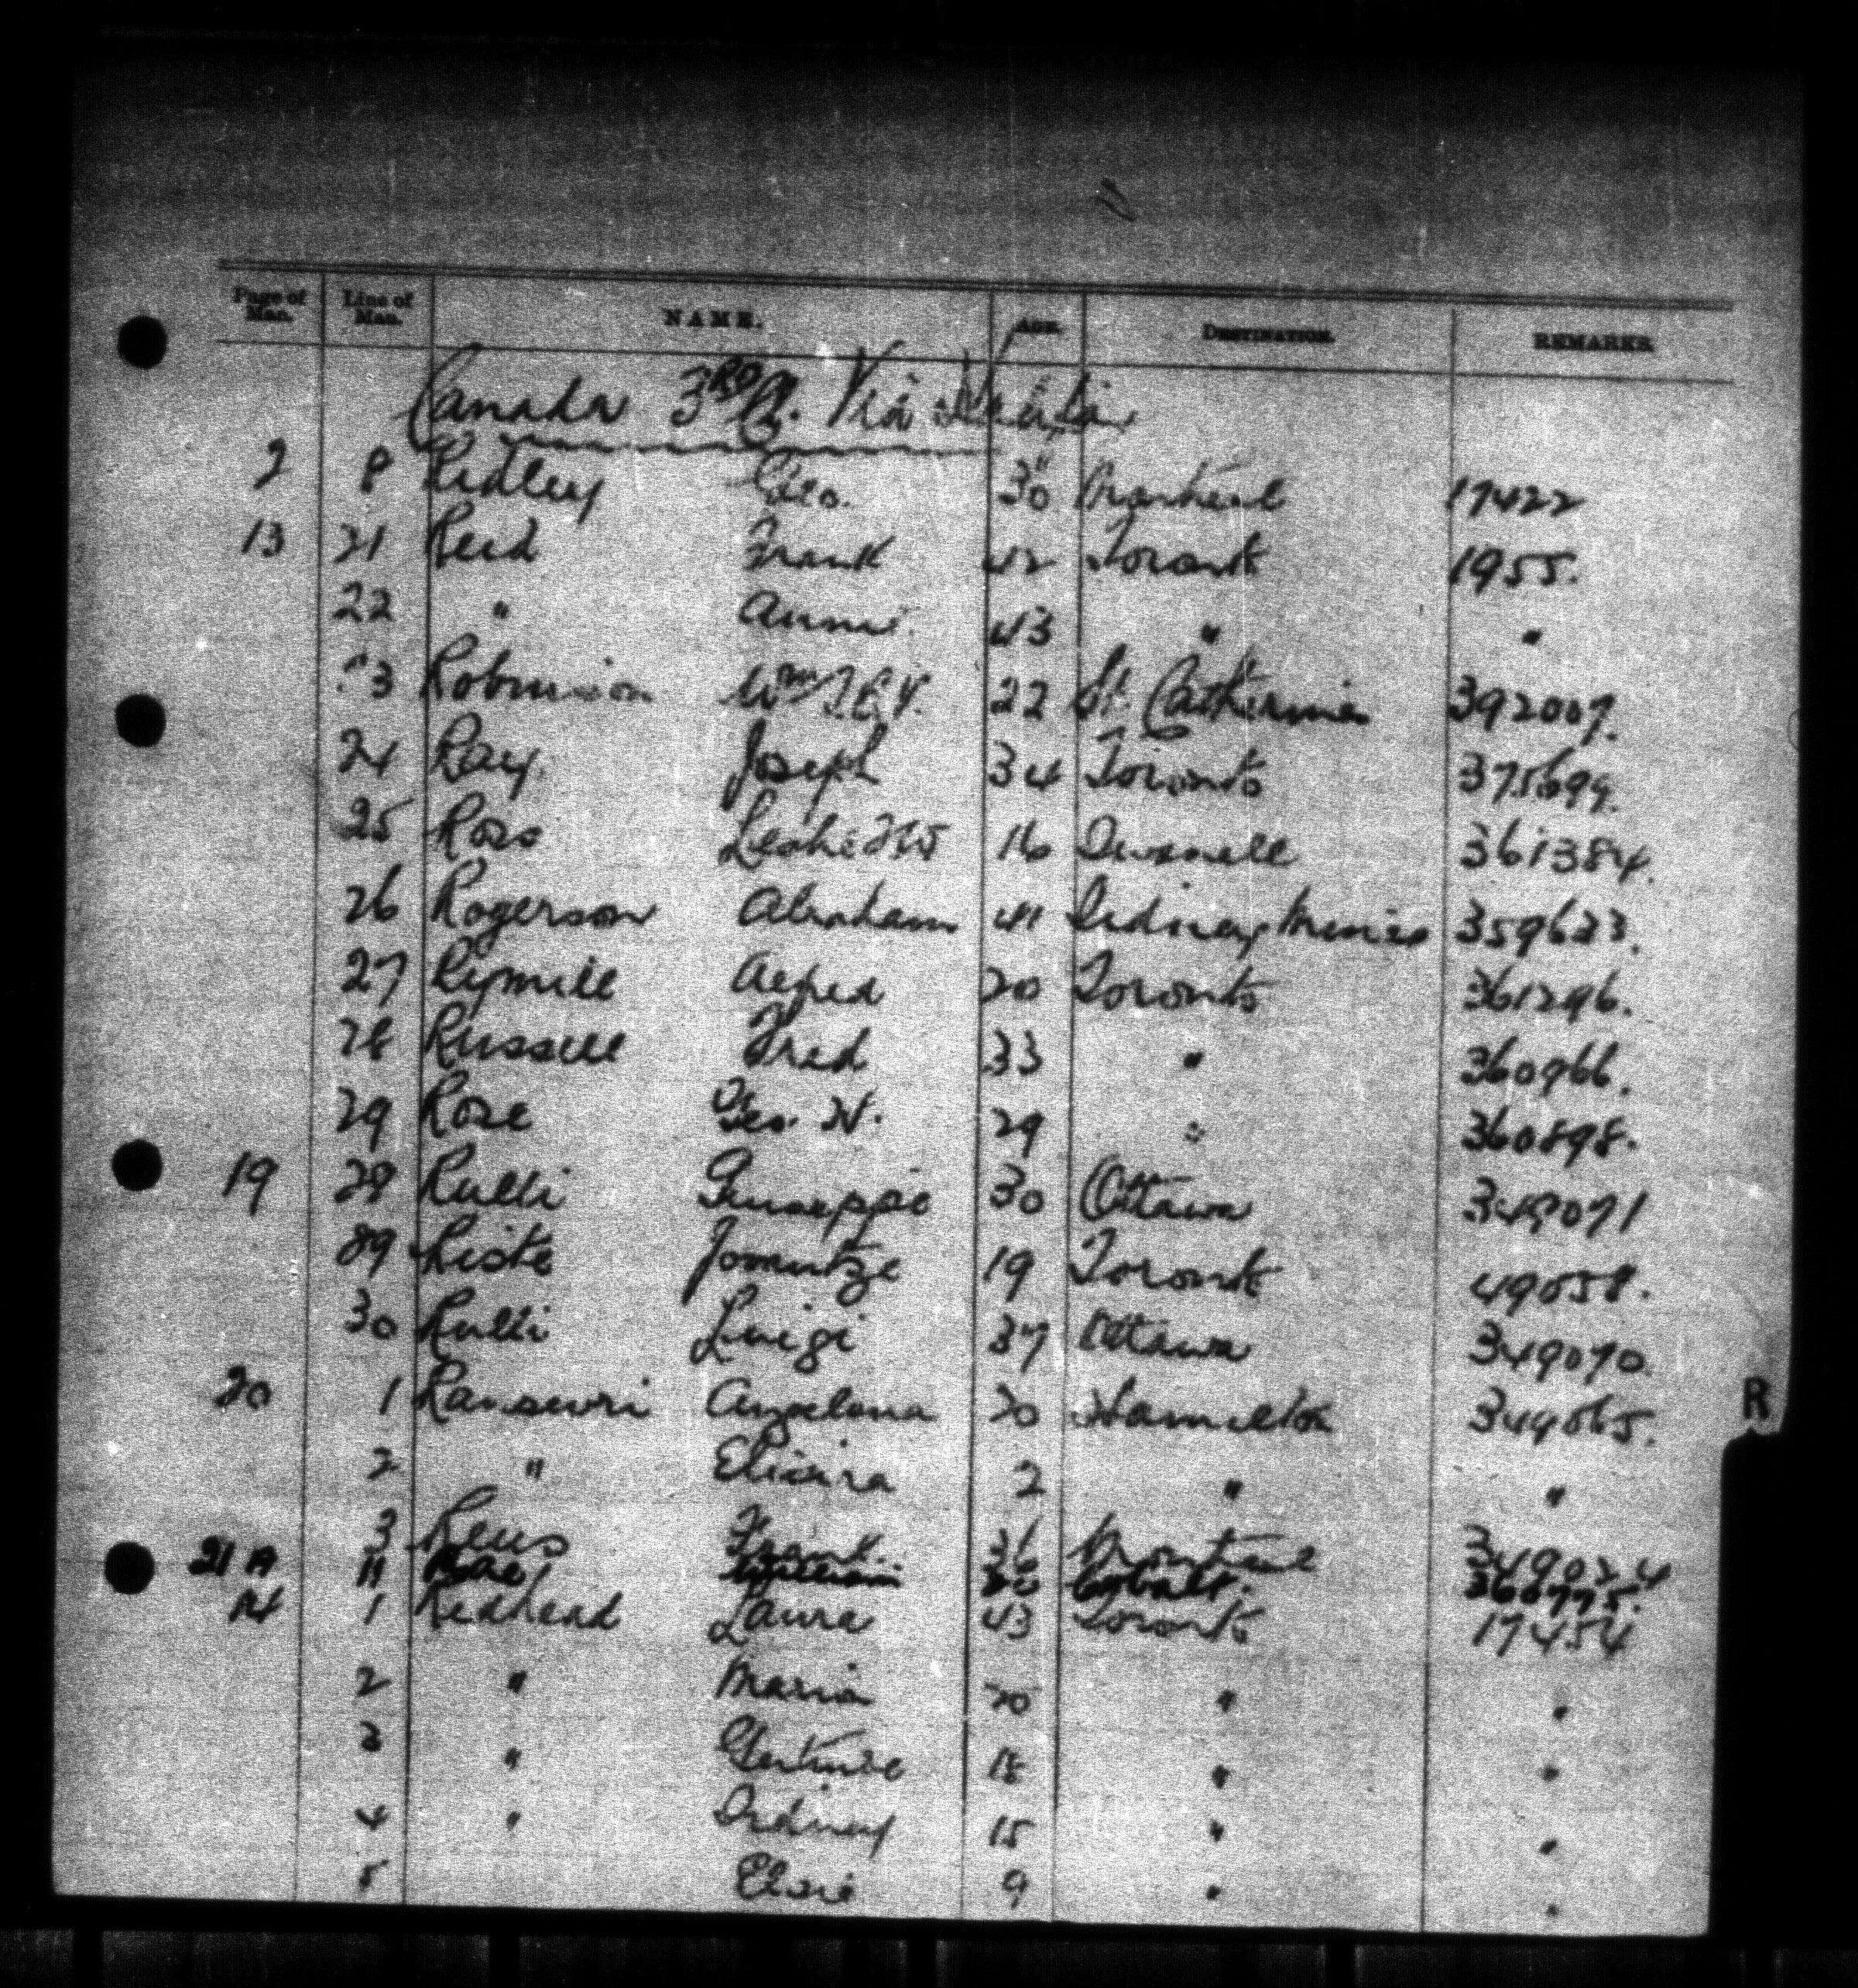 Page of Man. Line of Man. NAME. AGE. DESTINATION. REMARKS.
Canada 3RD Cl. Via
2 8 Ridley Geo. 30 Montreal 17422
13 21 Reid Frank 42 Toronto 1955.
22 " Annie 43 " "
23 Robinson Wm 22 St. Catherines 392007.
24 Ray. Joseph 34 Toronto 375699.
25 Ross Leslie 16 361384.
26 Rogerson Abraham 41 Sidney Mines 359623.
27 Rymill Alfred 20 Toronto 361296.
28 Russell Fred 33 " 360966.
29 Rose Geo. H. 29 " 360898.
19 28 Rulli Giuseppe 30 Ottawa 349071
29 Riste 19 Toronto 49058.
30 Rulli Luigi 37 Ottawa 349070.
20 1 Angelina 20 Hamilton 349065.
R
2 " Elvira 2 " "
3 Frank. 36 Montreal 349024
21 A 11 Rae, William Cobalt. 360775.
A4 1 Redhead Laura 43 Toronto 17454
2 " Maria 20 " "
3 " Gertrude 18 " "
4 " Sidney 15 " "
5 Elsie 9 " "